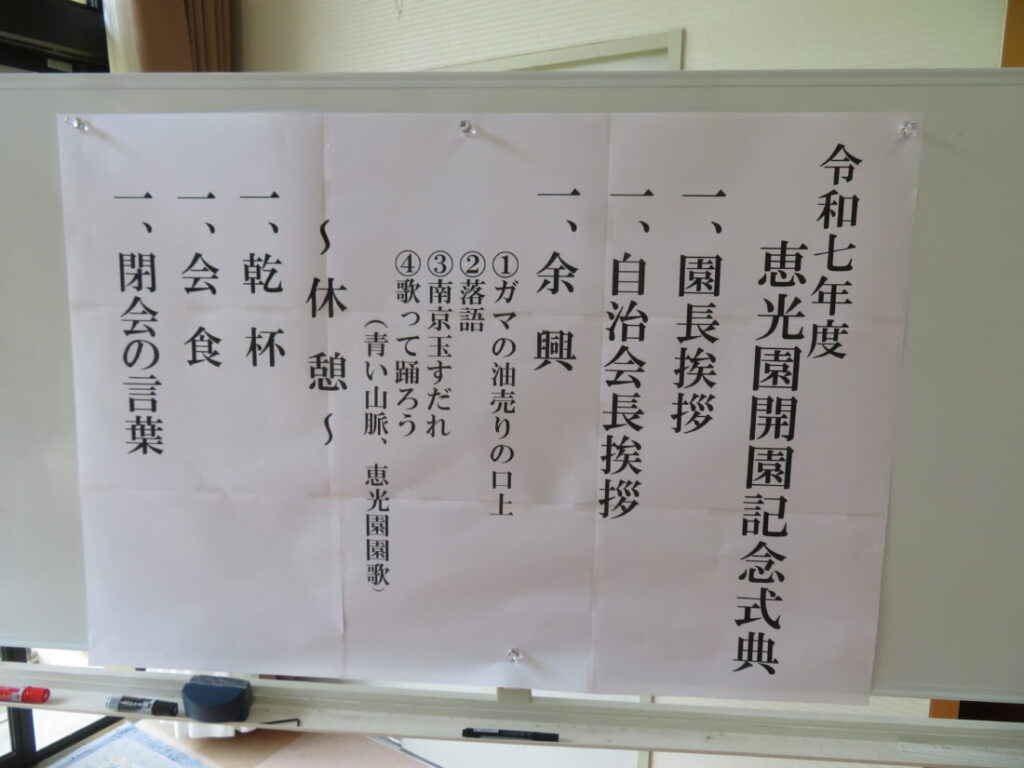 令和七年度
恵光園開園記念式典
一、園長挨拶
一、自治会長挨拶
一、余興
①ガマの油売りの口上
②落語
③南京玉すだれ
④歌って踊ろう
（青い山脈、恵光園園歌）
～休憩～
一、乾杯
一、会食
一、閉会の言葉